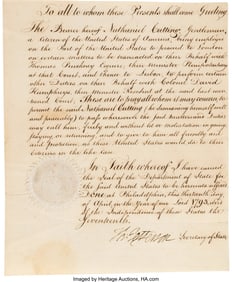 To all to whom these Presents shall come Greeting
The Bearer hereof Nathaniel Cutting, Gentleman,
a Citizen of the United States of America, being employed
on the Part of the United States to proceed to London
on certain matters to be transacted on their behalf with
Thomas Pinckney Esquire, their Minister Plenipotentiary
at that Court, and thence to Lisbon, to perform certain
other Duties on their Behalf with Colonel David
Humphreys their Minister Resident at the said last men
tioned Court; These are to pray all whom it may concern to
permit the said Nathaniel Cutting (he demeaning himself well
and peaceably) to pass wheresoever his
may call him, freely and without let or molestation in going
staying or returning, and to give to him all friendly aid
and protection, as these United States would do to their
citizens in the like case.
In Faith whereof I have caused
the Seal of the Department of State for
the said United States to be hereunto affixed
Done at Philadelphia, this thirteenth day
of April in the Year of our Lord 1793, and
of the Independence of these States the
Seventeenth.
Th: Jefferson Secretary of State
Imaged by Heritage Auctions, HA.com